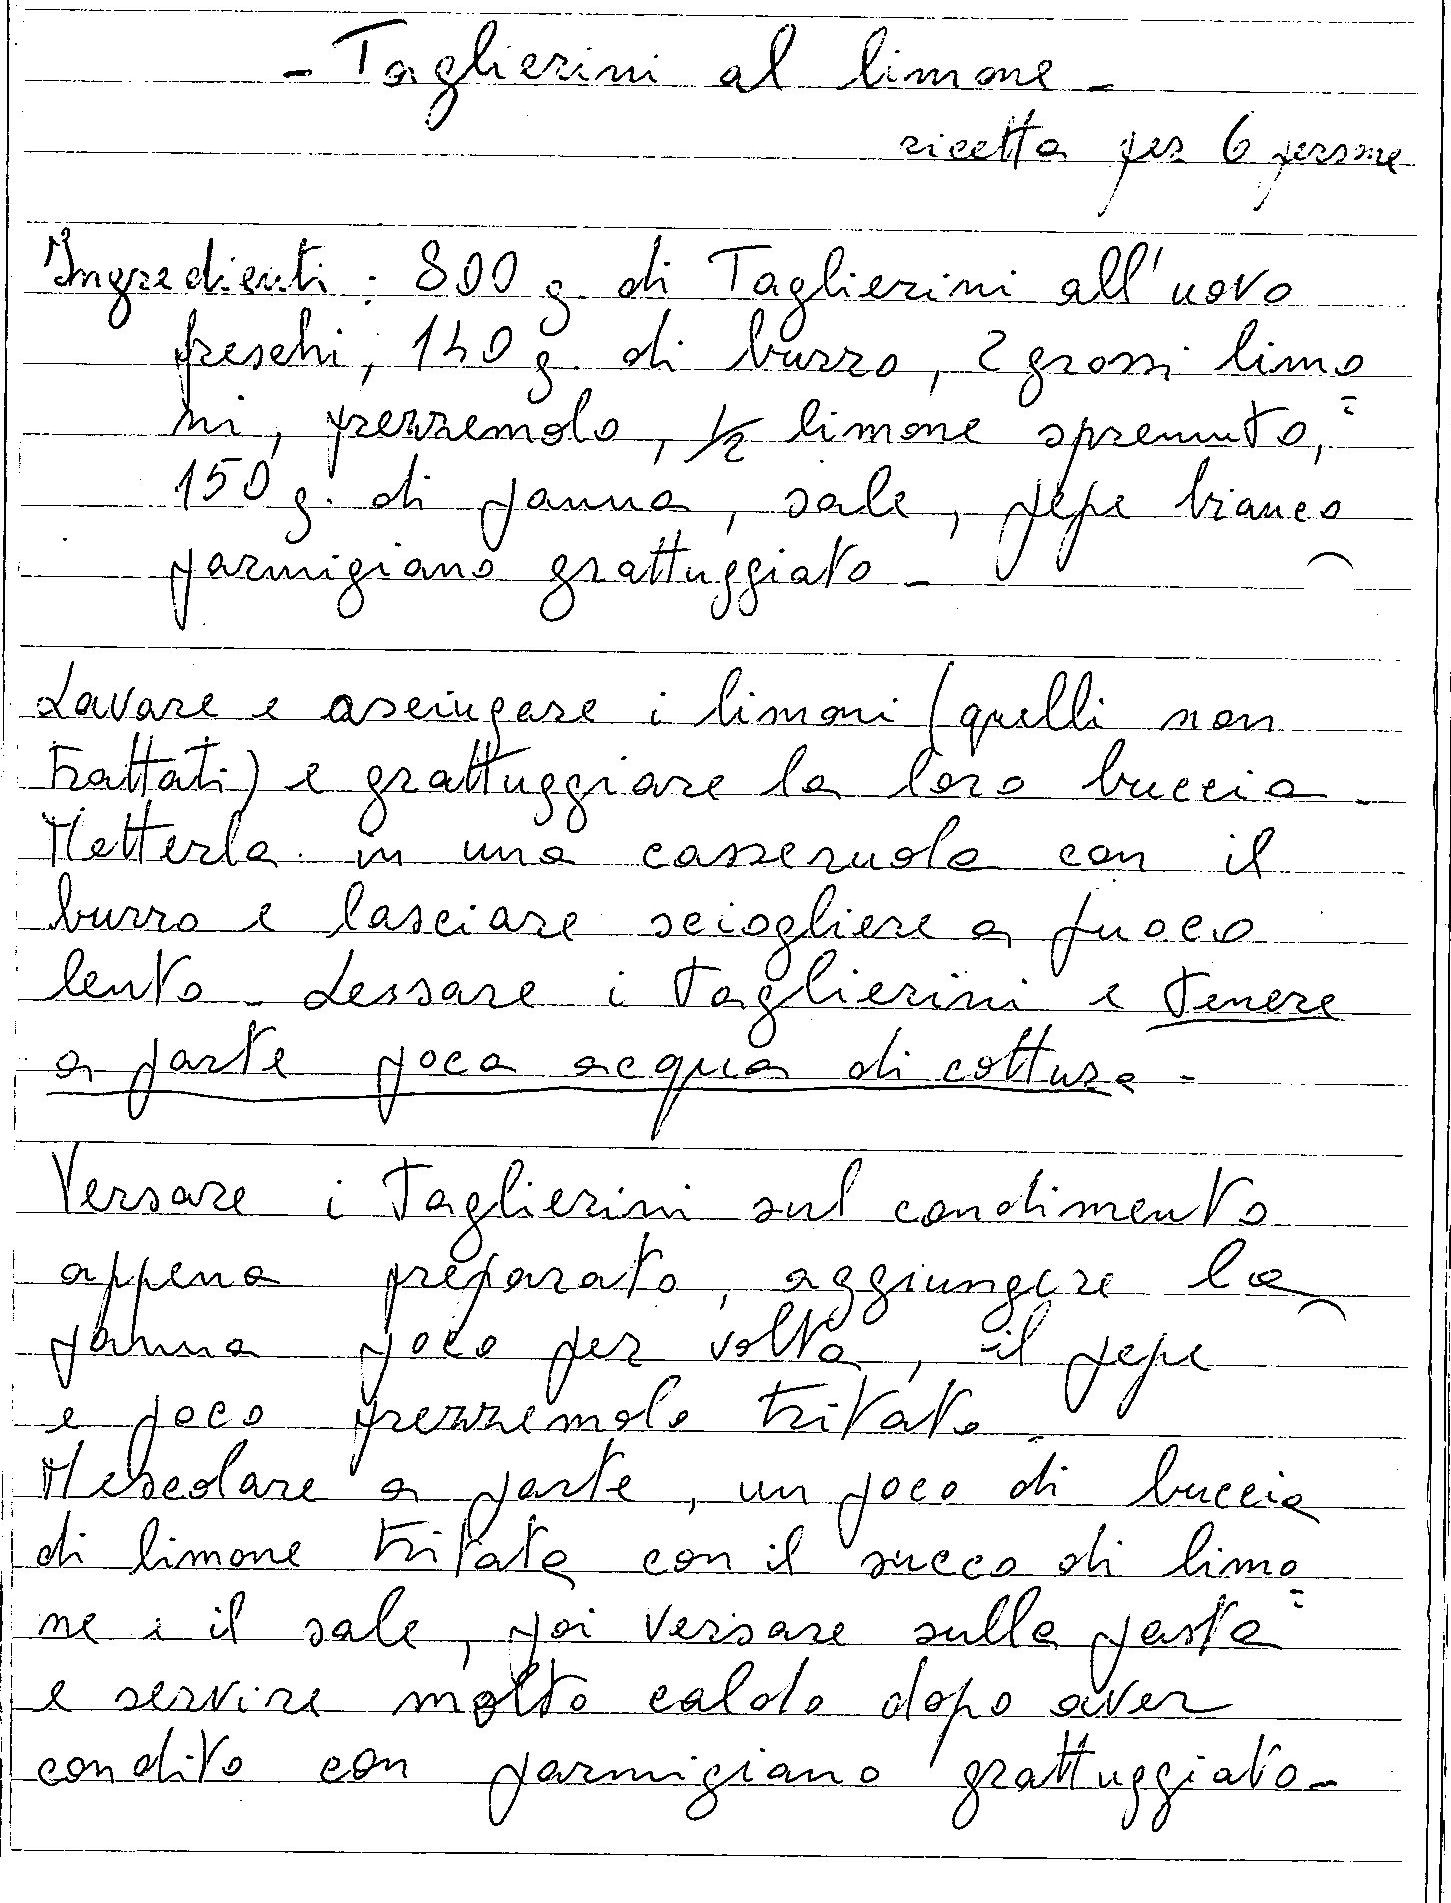 - Taglierini al limone -
ricetta per 6 persone
Ingredienti : 800 g. di Taglierini all'uovo
freschi, 140 g. di burro, 2 grossi limo=
ni, prezzemolo, 1/2 limone spremuto,
150 g. di panna, sale, pepe bianco
parmigiano grattuggiato -
Lavare e asciugare i limoni (quelli non
trattati) e grattuggiare la loro buccia -
Metterla in una casseruola con il
burro e lasciare sciogliere a fuoco
lento - Lessare i Taglierini e tenere
a parte poca acqua di cottura -
Versare i Taglierini sul condimento
appena preparato, aggiungere la
panna poco per volta, il pepe
e poco prezzemolo tritato -
Mescolare a parte, un poco di buccia
di limone tritata con il succo di limo=
ne e il sale, poi versare sulla pasta
e servire molto caldo dopo aver
condito con parmigiano grattuggiato -